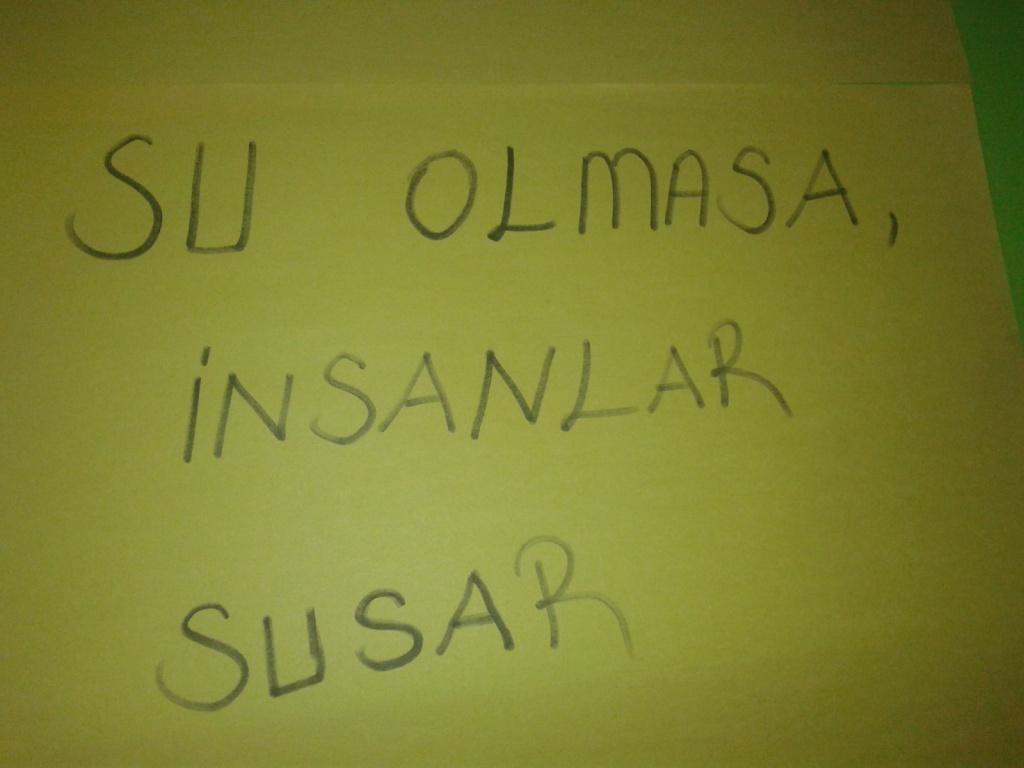 SU OLMASA,
İNSANLAR
SUSAR